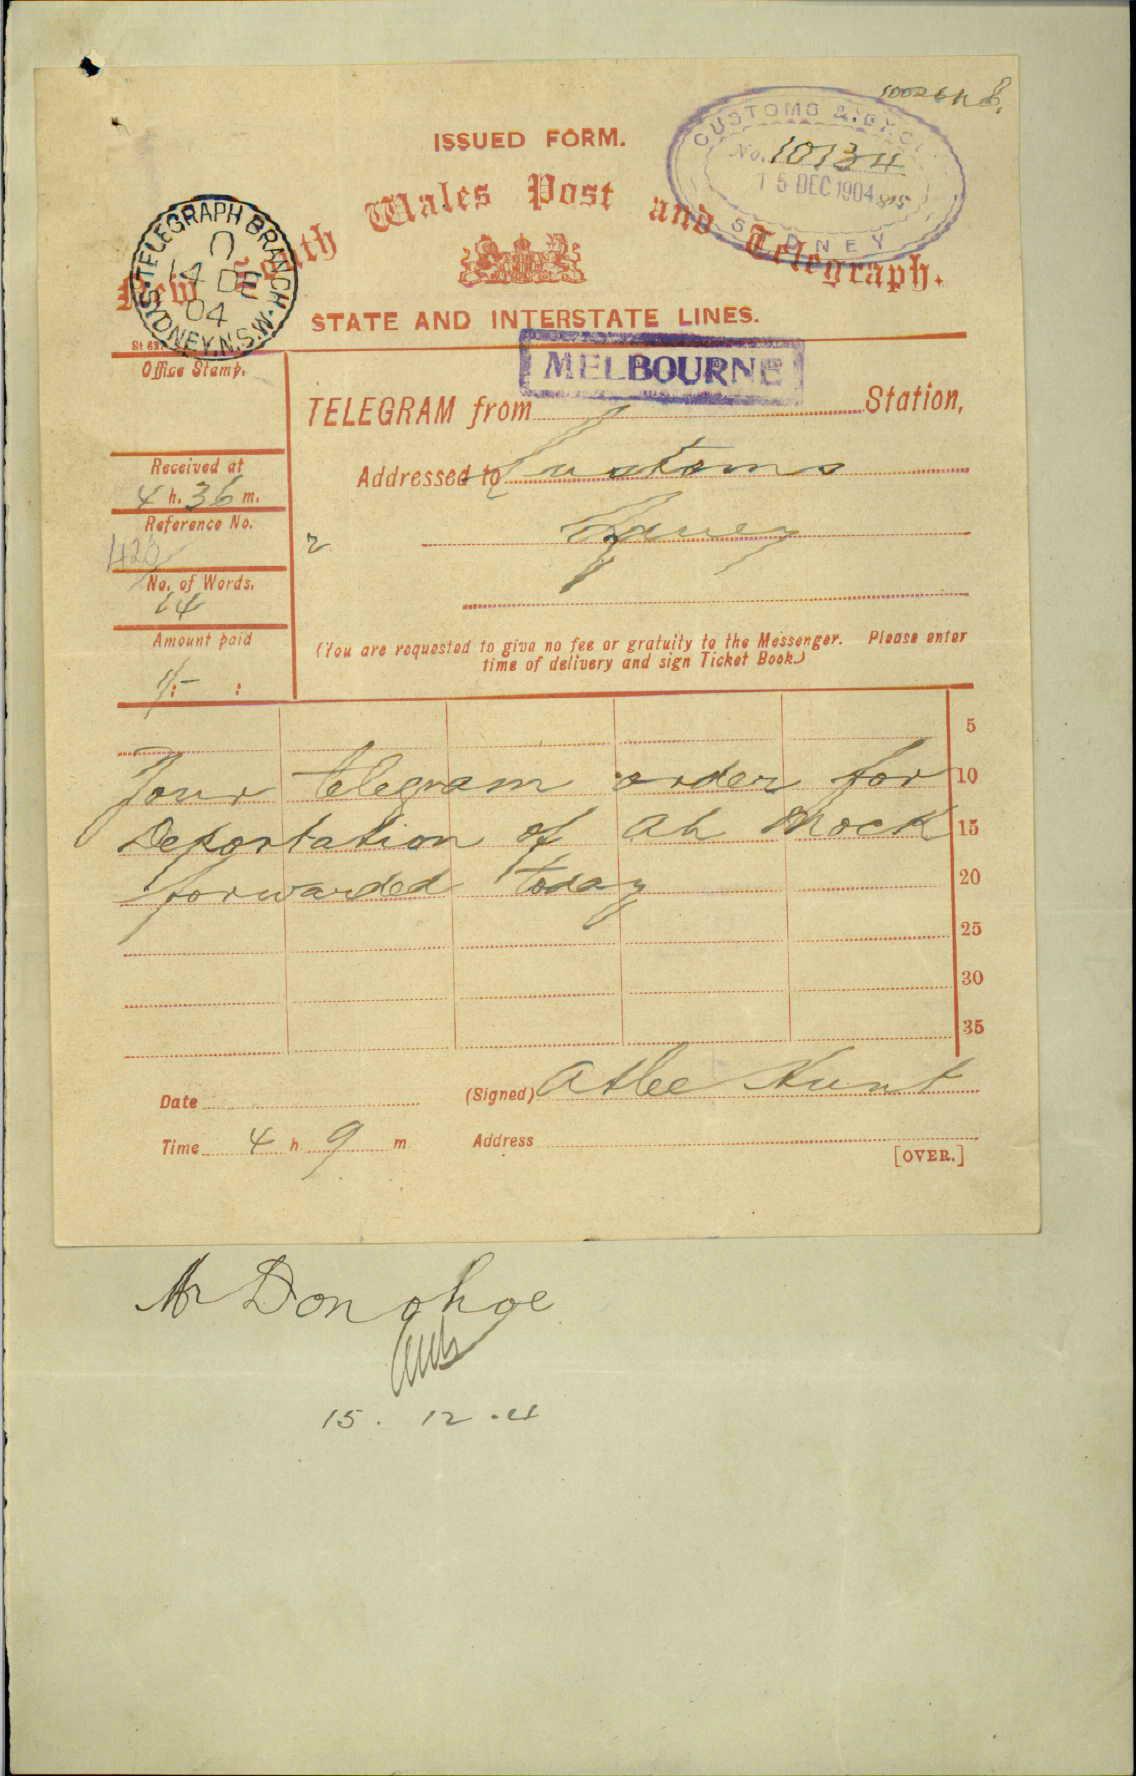 ISSUED FORM.
CUSTOMS & EXCI
No. 10134
15 DEC 1904
SYDNEY
New South Wales Post and Telegraph.
TELEGRAPH BRANCH
14 DE
04
SYDNEY.N.S.W.
STATE AND INTERSTATE LINES.
MELBOURNE
Office Stamp.
TELEGRAM from Station,
Addressed to Customs
Sydney
Received at
4 h. 36 m.
Reference No.
No. of Words.
14
Amount paid
1/-
(You are requested to give no fee or gratuity to the Messenger. Please enter
time of delivery and sign Ticket Book.)
5
Your telegram order for 10
Deportation of Ah Mock 15
forwarded today 20
25
30
35
Date (Signed) Atlee Hunt
Time 4 h 9 m Address
[OVER.]
Mr Donohoe
15. 12. 4